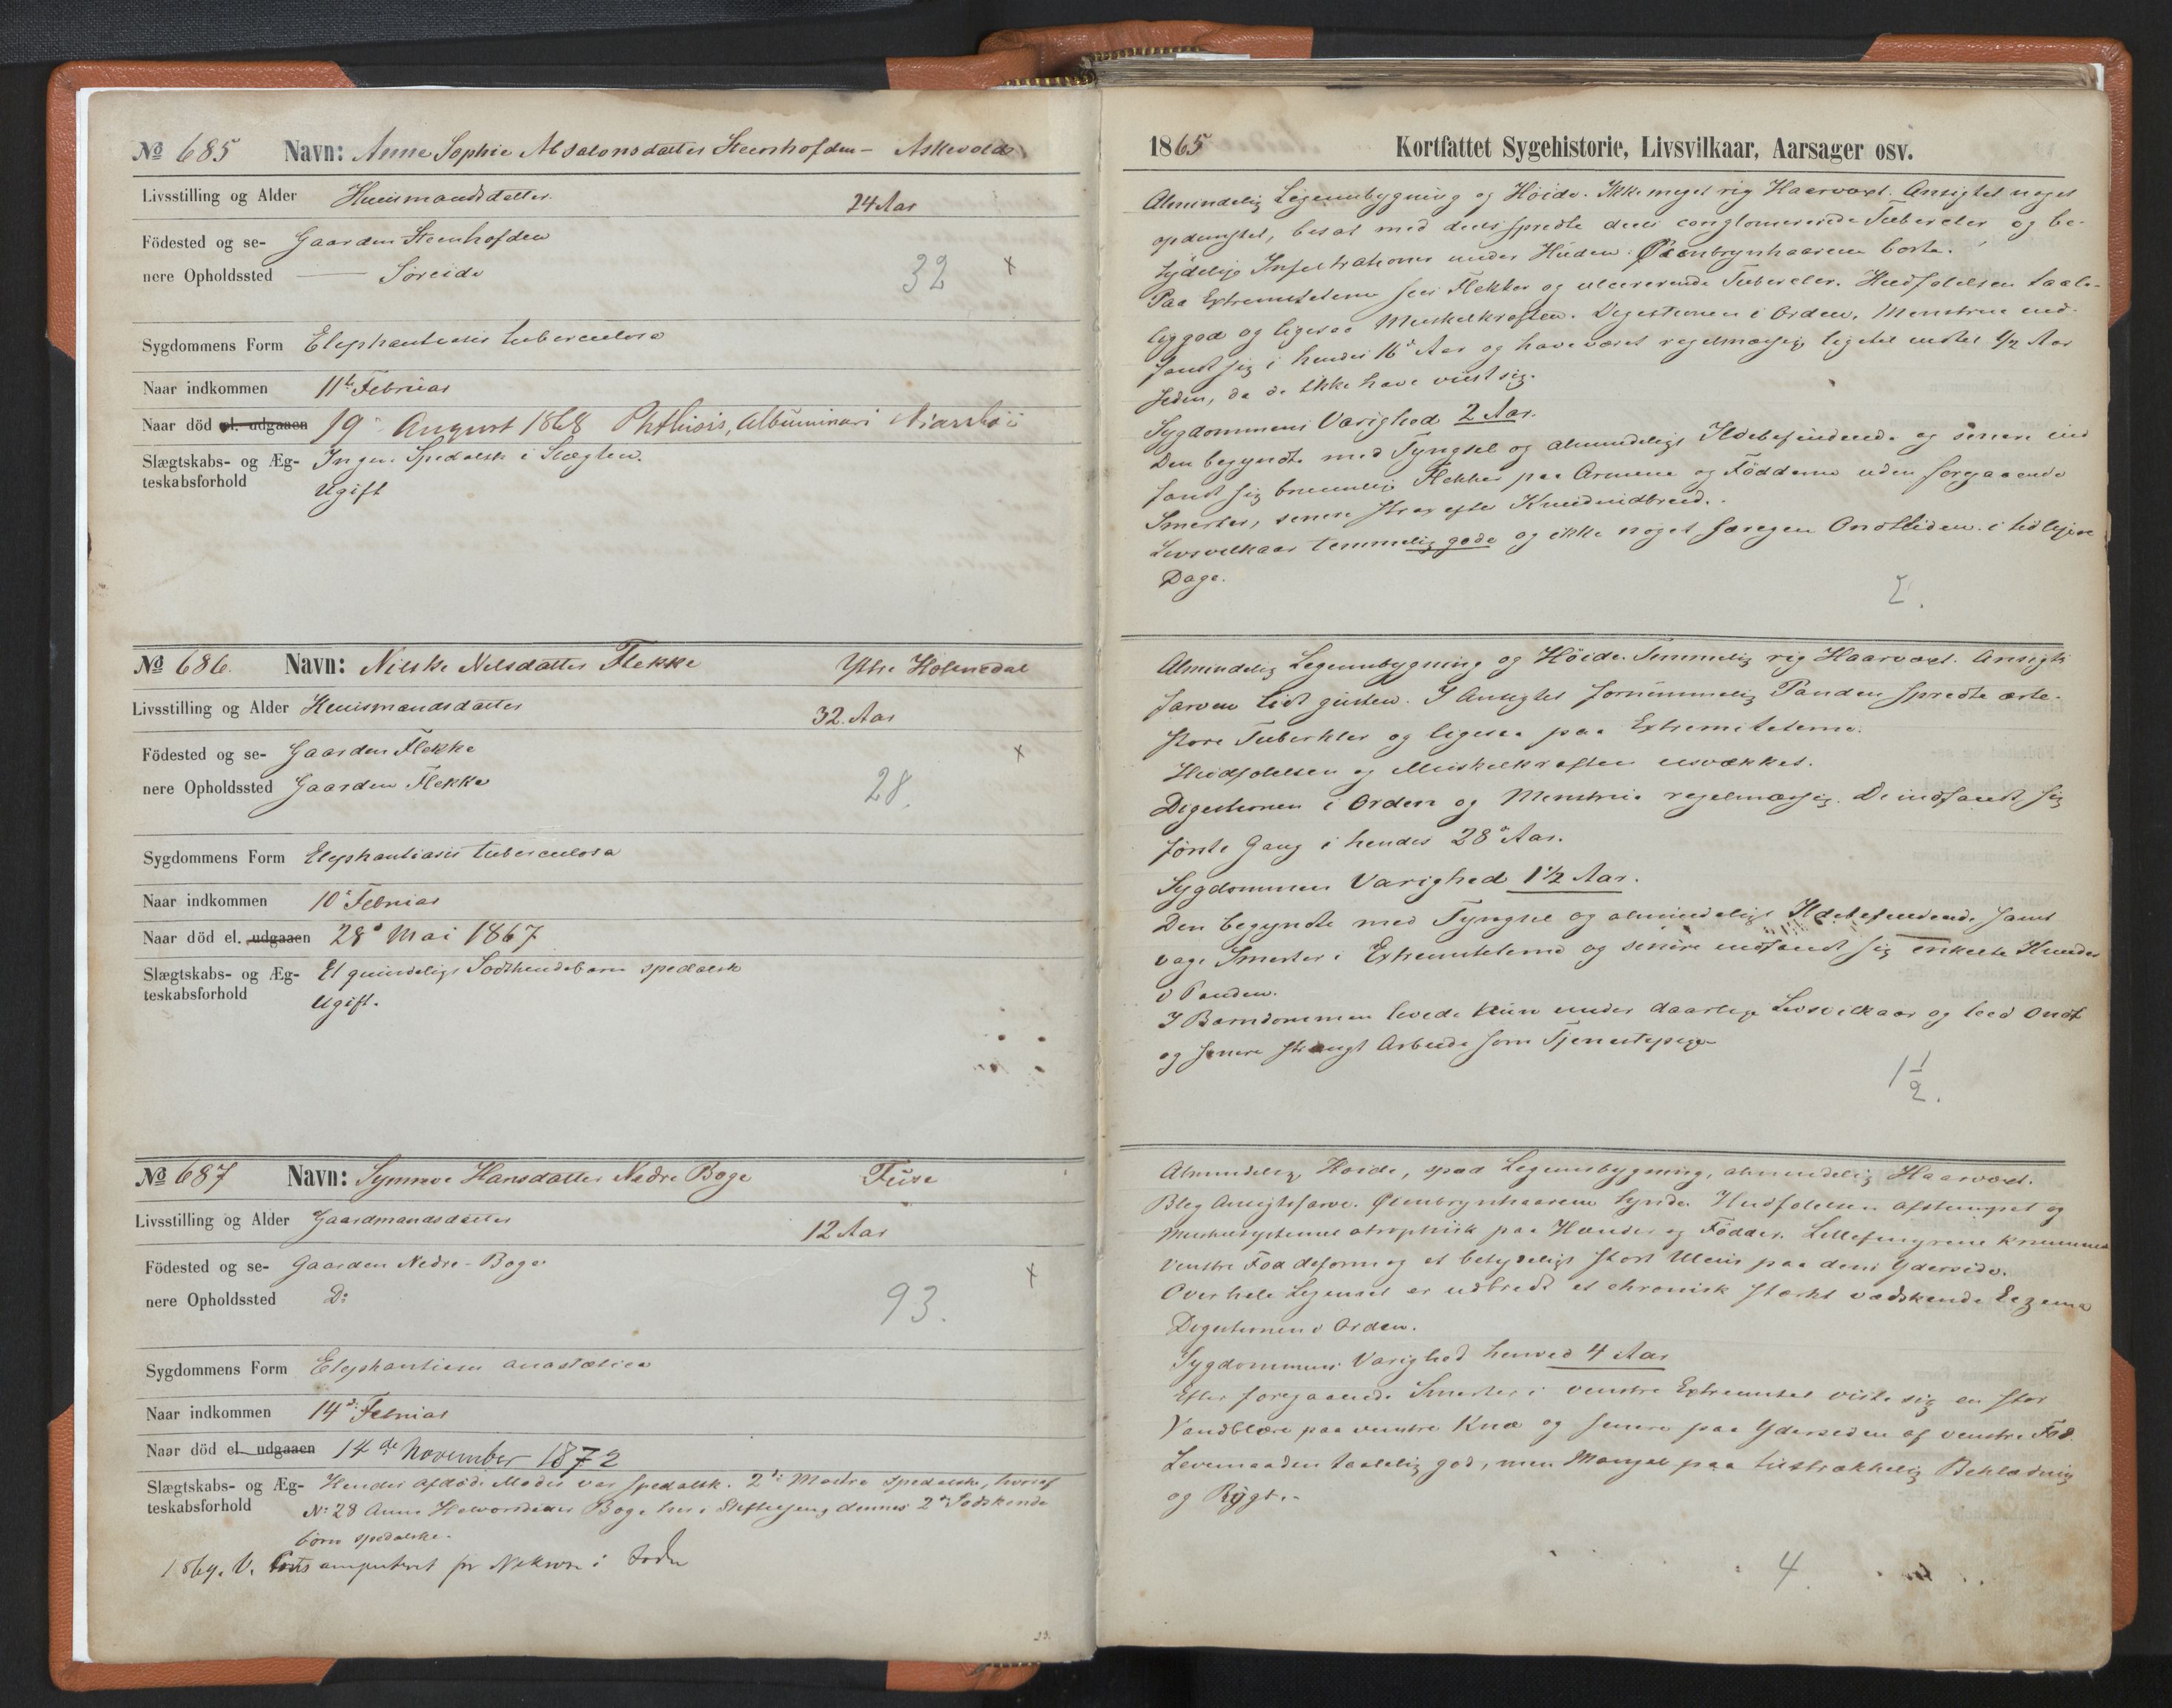 № 685 Navn: Anne Sophie Absalonsdatter Steenhofden - Askevold
Livsstilling og Alder Huusmandsdatter 24 Aar
Födested og se- Gaarden Steenhofden
nere Opholdssted —— Söreide 32 x
Sygdommens Form Elephantiasis tuberculosa
Naar indkommen 11te Februar
Naar död el. udgaaen 19 August 1868 Phthisis, Albuminuri
Slægtskabs- og Æg- Ingen Spedalsk i Slægten.
teskabsforhold Ugift
№ 686. Navn: Nilske Nelsdatter Flekke Ytre Holmedal
Livsstilling og Alder Huusmandsdatter 32 Aar
Födested og se- Gaarden Flekke x
nere Opholdssted Gaarden Flekke 28.
Sygdommens Form Elephantiasis tuberculosa
Naar indkommen 10d Februar
Naar död el. udgaaen 28d Mai 1867
Slægtskabs- og Æg- Et quindeligt Södskendebarn spedalsk
teskabsforhold Ugift.
№ 687 Navn: Synneve Hansdatter Nedre Boge Fuse
Livsstilling og Alder Gaardmandsdatter 12 Aar
Födested og se- Gaarden Nedre-Boge x
nere Opholdssted Do 93.
Sygdommens Form Elephantiasis anæsthetica
Naar indkommen 14d Februar
Naar död el. udgaaen 14de November 1872
Slægtskabs- og Æg- Hendes afdöde Moder var spedalsk. 2de Mostre spedalske, hvoraf
teskabsforhold No 28 Anna Boge her i Stiftelsen, dennes 2de Södskende
börn spedalske.
1869. V. amputeret for Nekrose i Foden
23.
1865 Kortfattet Sygehistorie, Livsvilkaar, Aarsager osv.
Almindelig Legemsbygning og Höide. Ikke meget rig Haarvæxt. Ansigtet noget
opdunstet, besat med deels spredte deels conglomererede Tubercler og be-
tydelige Infiltrationer under Huden. Öienbrynhaarene borte.
Paa Extremiteterne sees Flekker og ulcererende Tubercler. Hudfölelsen taale-
lig god og ligesaa Muskelkraften. Digestionen i Orden. Menstrua ind-
fandt sig i hendes 16d Aar og have været regelmæssige ligetil indtil 1/2 Aar
siden, da de ikke have viist sig.
Sygdommens Varighed 2 Aar.
Den begyndte med Tyngsel og almindeligt Ildebefindende og senere ind
fandt sig bruunlige Flekker paa Armene og Födderne uden foregaaende
Smerter, senere strax efter Knudeudbrud.
Livsvilkaar temmelig gode og ikke noget særegen Ondtliden i tidligere
Dage.
2.
Almindelig Legemsbygning og Höide. Temmelig rig Haarvæxt. Ansigts
farven lidt gusten. I Ansigtet fornemmelig Panden spredte ærte-
store Tuberkler og ligesaa paa Extremiteterne.
Hudfölelsen og Muskelkraften usvækket.
Digestionen i Orden og Menstrua regelmæssig. De indfandt sig
förste Gang i hendes 28d Aar.
Sygdommens Varighed 1 1/2 Aar.
Den begyndte med Tyngsel og almindeligt Ildebefindende samt
vage Smerter i Extremiteterne og senere indfandt sig enkelte Knuder
i Panden.
I Barndommen levede hun under daarlige Livsvilkaar og leed Ondt
og senere strengt Arbeide som Tjenestepige
1 1/2.
Almindelig Höide, spæd Legemsbygning, almindelig Haarvæxt.
Bleg Ansigtsfarve. Öienbrynhaarene tynde. Hudfölelsen afstumpet og
Muskelsystemet atrophisk paa Hænder og Födder. Lillefingrene krummede
Venstre Fod deform og et betydeligt stort Ulcus paa dens Yderside.
Over hele Legemet er udbredt et chronisk stærkt vædskende Eczema
Digestionen i Orden.
Sygdommens Varighed henved 4 Aar
Efter foregaaende Smerter i venstre Extremitet viiste sig en stor
Vandblære paa venstre Knæ og senere paa Ydersiden af venstre Fod.
Levemaaden taalelig god, men Mangel paa tilstrækkelig Beklædning
og Rygt.
4